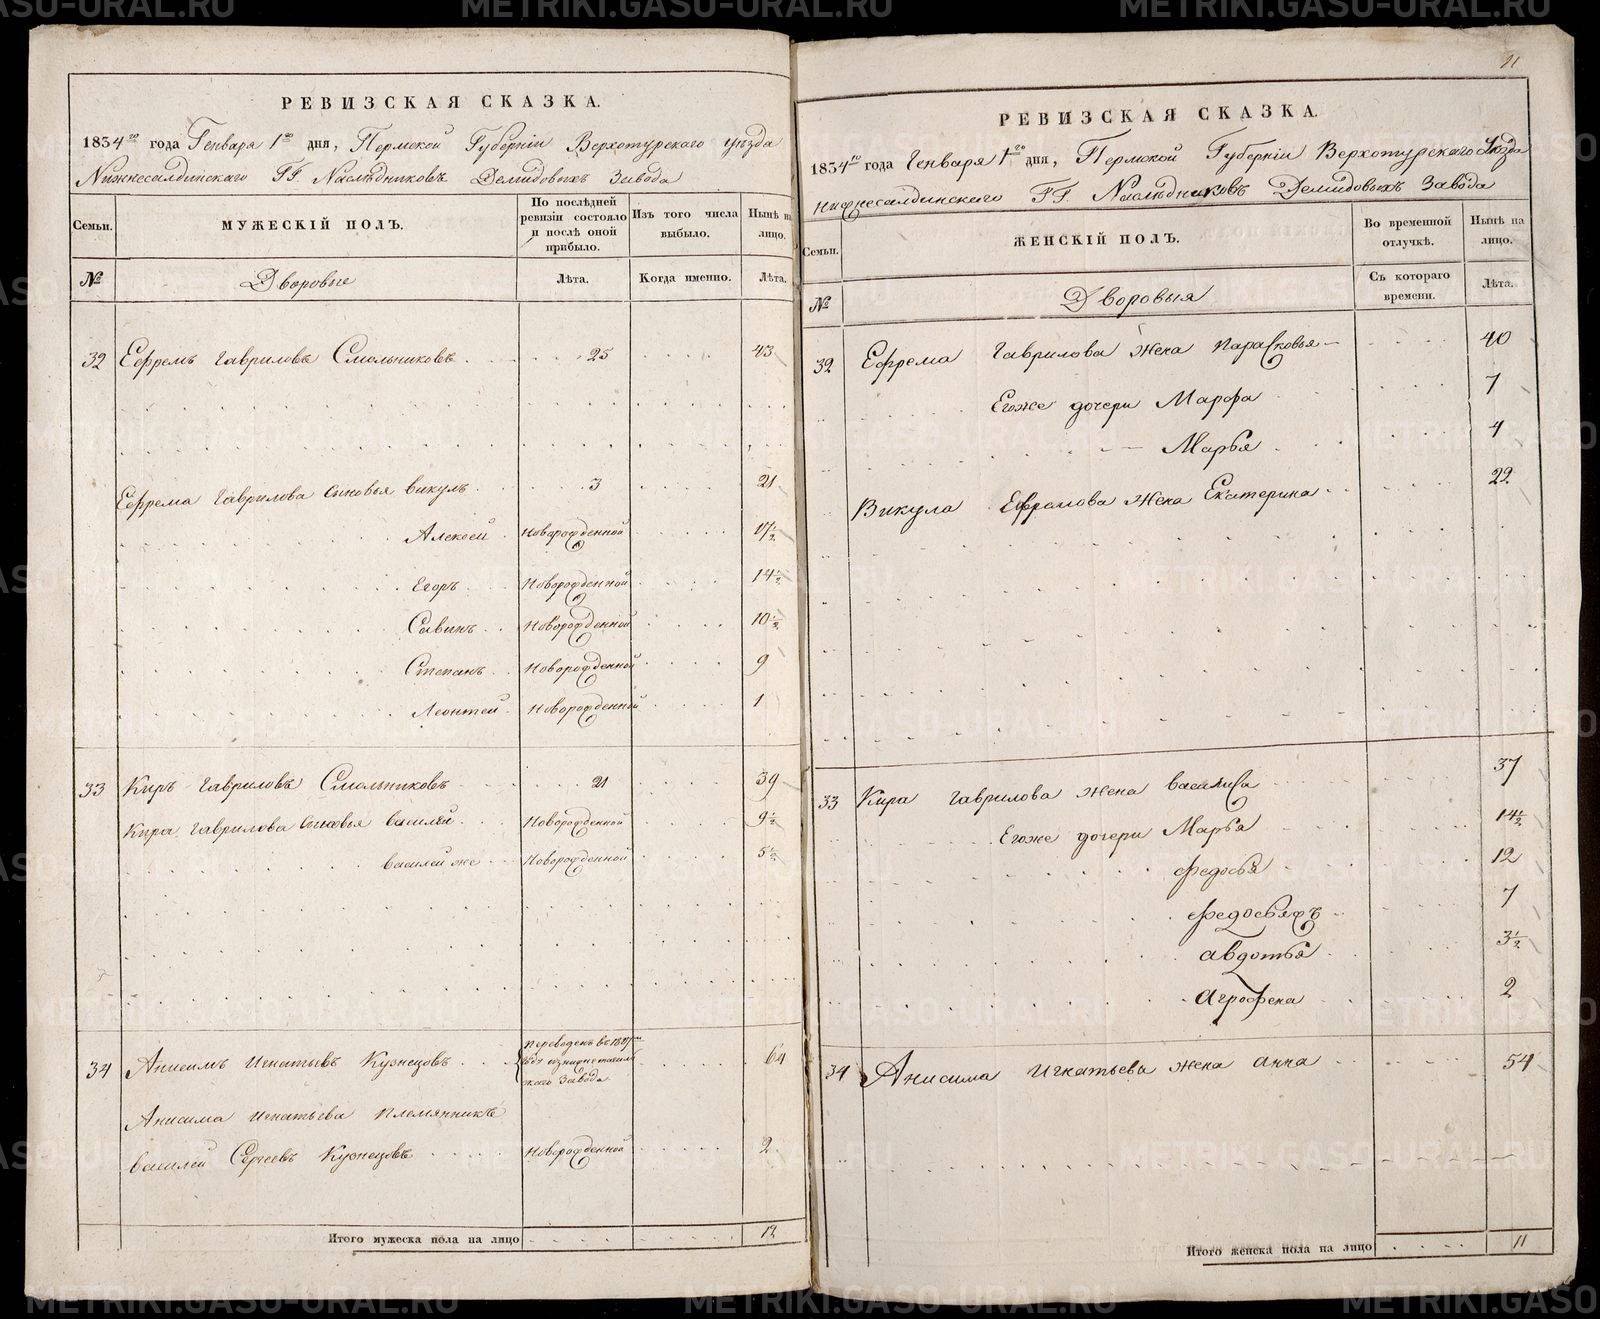 РЕВИЗСКАЯ СКАЗКА.
1834го года Генваря 1го дня, Пермской Губерніи Верхотурскаго уѣзда
Нижнесалдинскаго ГГ. Наслѣдниковъ Демидовыхъ Завода
Семьи.
МУЖЕСКІЙ ПОЛЪ.
По послѣдней ревизіи состояло и послѣ оной прибыло.
Изъ того числа выбыло.
Нынѣ на лицо.
№
Дворовые
Лѣта.
Когда именно.
Лѣта.
32 Ефремъ Гавриловъ Смольниковъ 25 43
Ефрема Гаврилова сыновья Викулъ 3 21
Алексей Новорожденной 17½
Егоръ Новорожденной 14½
Савинъ Новорожденной 10½
Степанъ Новорожденной 9
Леонтей Новорожденной 1
33 Киръ Гавриловъ Смольниковъ 21 39
Кира Гаврилова сыновья Василей Новорожденной 9½
Василей же Новорожденной 5½
34 Анисимъ Игнатьевъ Кузнецовъ Переведенъ въ завода 64
Анисима Игнатьева племянникъ
Василей Сергеевъ Кузнецовъ Новорожденной 2
Итого мужеска пола на лицо 12
21
РЕВИЗСКАЯ СКАЗКА.
1834го года Генваря 1го дня, Пермской Губерніи Верхотурскаго Уѣзда
Нижнесалдинскаго ГГ. Наслѣдниковъ Демидовыхъ Завода
Семьи.
ЖЕНСКІЙ ПОЛЪ.
Во временной отлучкѣ.
Нынѣ на лицо.
№
Дворовыя
Съ котораго времени.
Лѣта.
32 Ефрема Гаврилова жена Парасковья 40
Егоже дочери Марфа 7
Марья 4
Викула Ефремова жена Екатерина 22
33 Кира Гаврилова жена Василиса 37
Егоже дочери Марья 14½
Федосья 12
Федосьяжъ 7
Авдотья 3½
Агрофена 2
34 Анисима Игнатьева жена Анна 54
Итого женска пола на лицо 11
METRIKI.GASO-URAL.RU